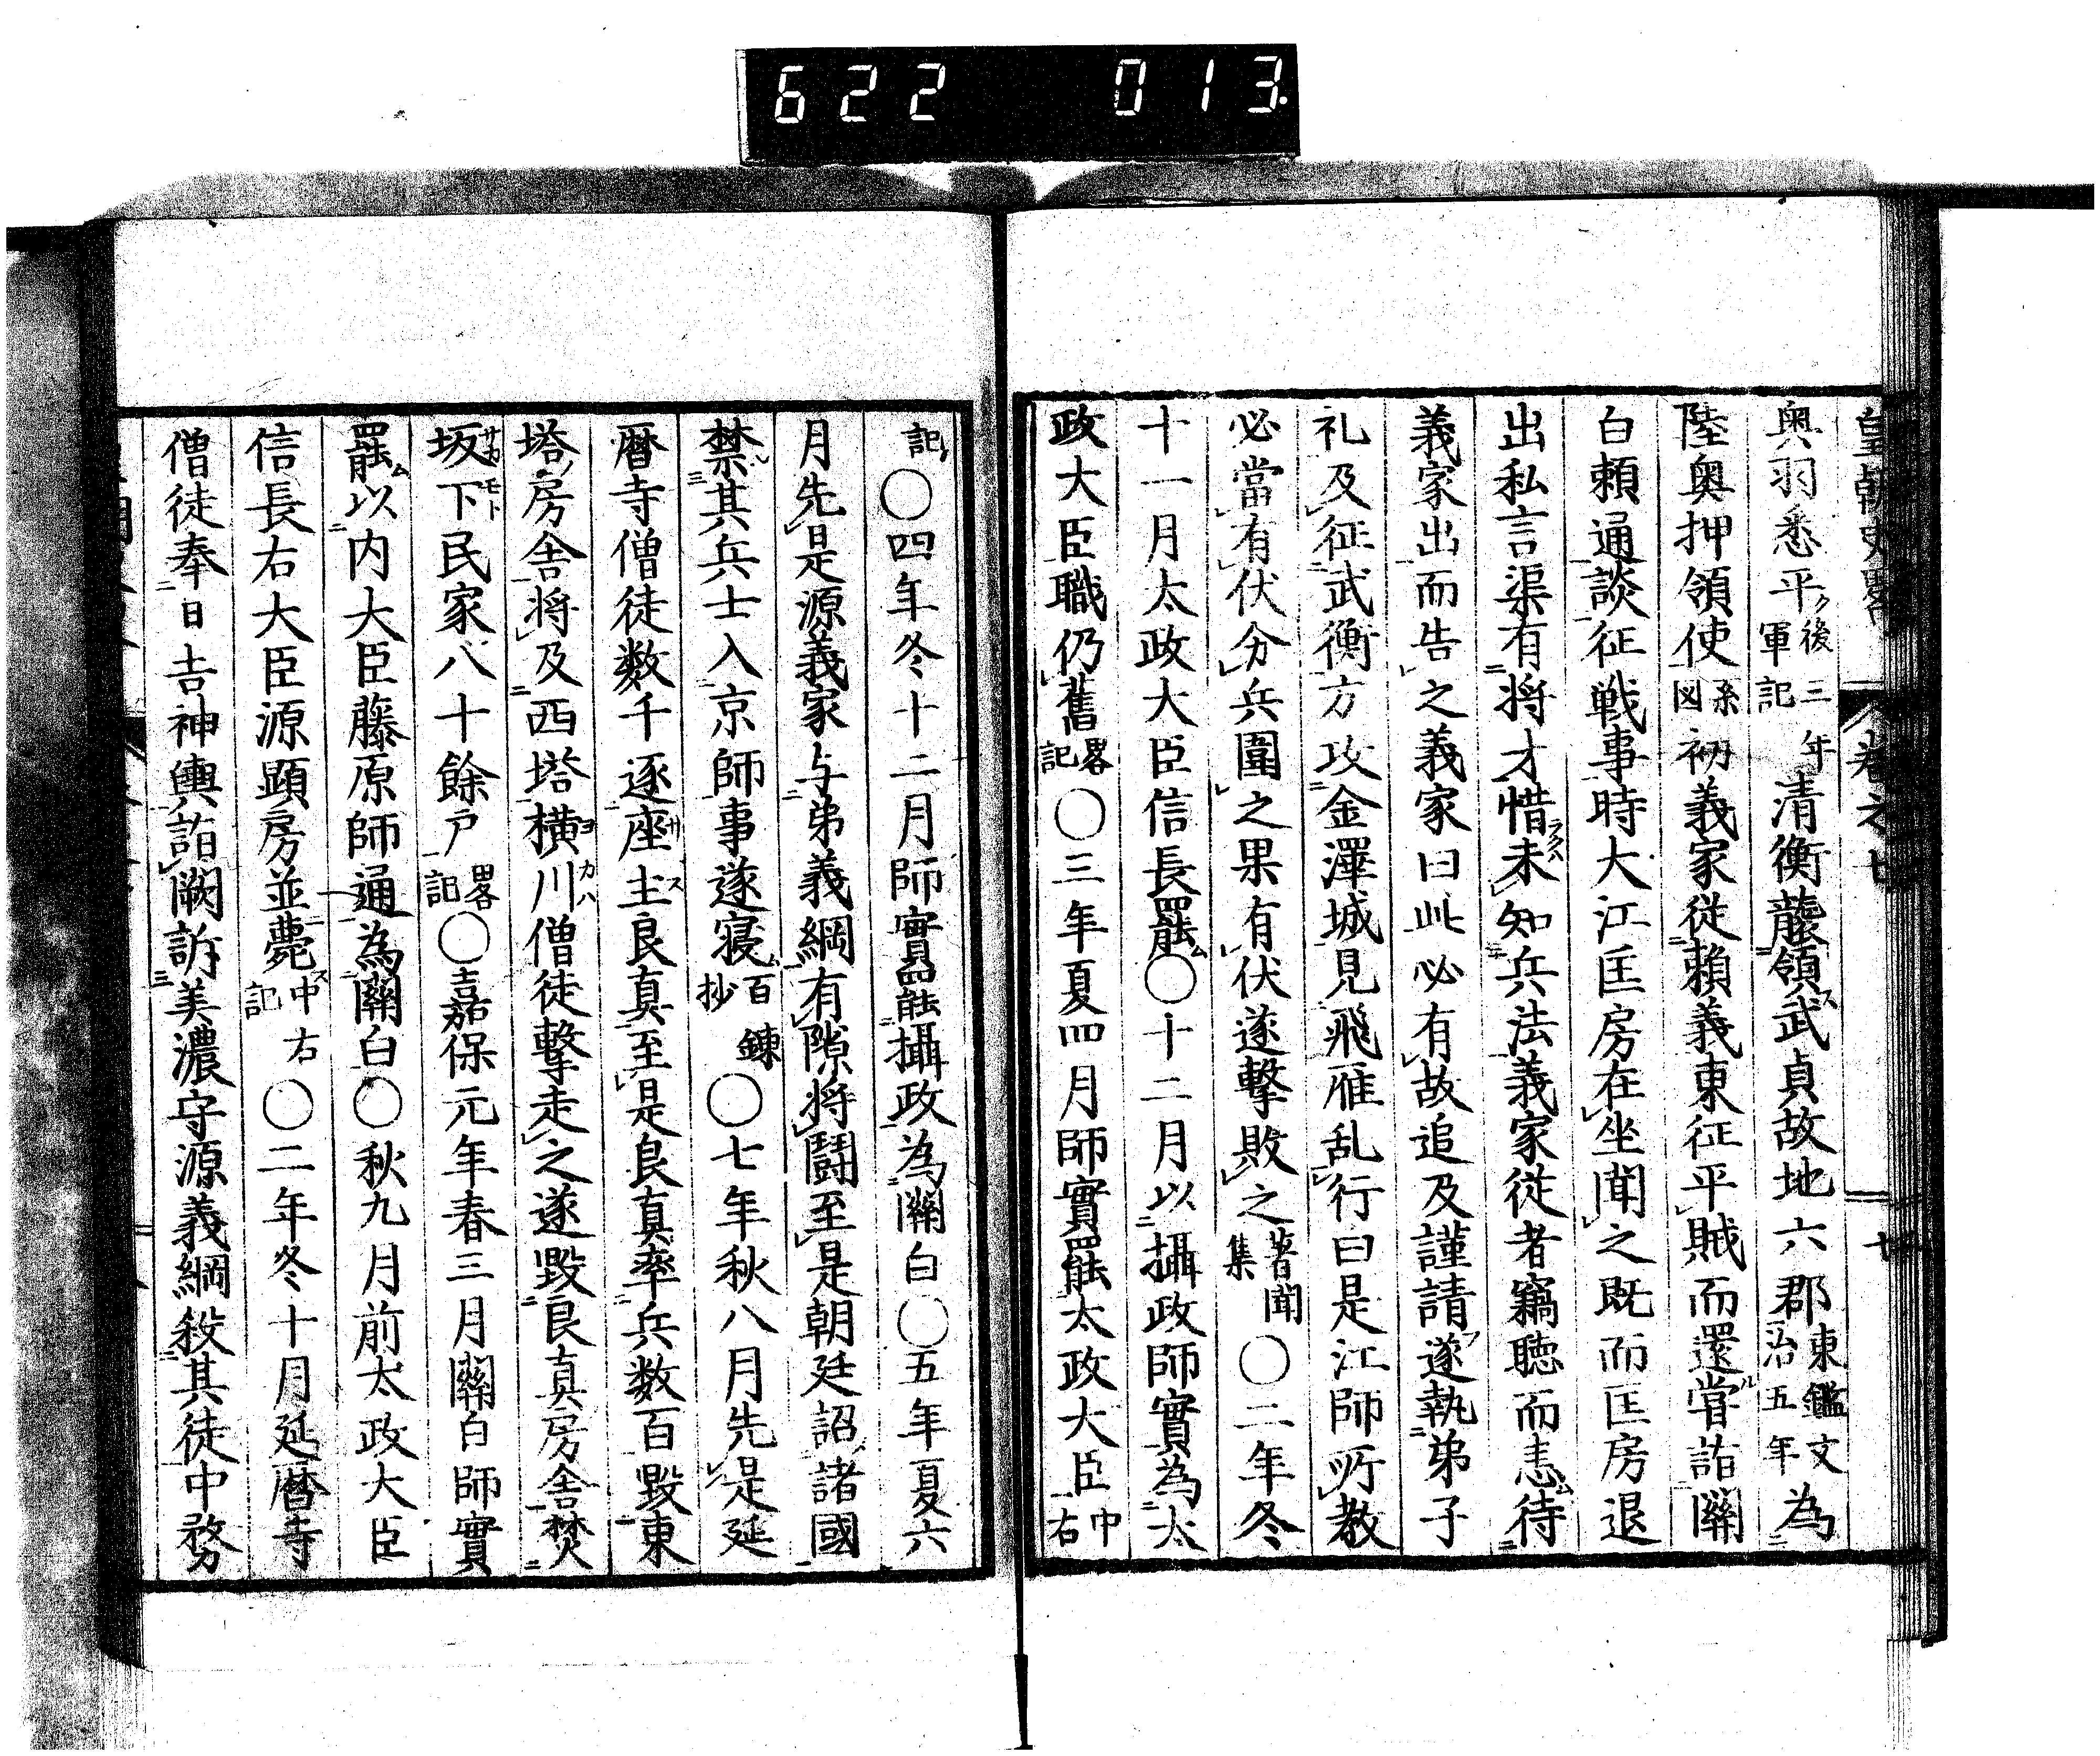 622 013
皇朝史畧 巻之七 十
奥羽悉平後三年軍記清衡襲領武貞故地六郡東鑑文治五年為
陸奥押領使系図初義家従頼義東征平賊而還嘗詣關
白頼通談征戦事時大江匡房在坐聞之既而匡房退
出私言渠有将才惜未知兵法義家従者竊聴而恚待
義家出而告之義家曰此必有故追及謹請遂執弟子
礼及征武衡方攻金澤城見飛雁乱行曰是江師所教
必當有伏分兵圍之果有伏遂撃敗之著聞集〇二年冬
十一月太政大臣信長罷〇十二月以攝政師實為太
政大臣職仍舊畧記〇三年夏四月師實罷太政大臣中右
記〇四年冬十二月師實罷攝政為關白〇五年夏六
月先是源義家与弟義綱有隙将鬪至是朝廷詔諸國
禁其兵士入京師事遂寝百錬抄〇七年秋八月先是延
暦寺僧徒数千逐座主良真至是良真率兵数百毀東
塔房舎将及西塔横川僧徒撃走之遂毀良真房舎焚
坂下民家八十餘戸畧記〇嘉保元年春三月關白師實
罷以内大臣藤原師通為關白〇秋九月前太政大臣
信長右大臣源顕房並薨中右記〇二年冬十月延暦寺
僧徒奉日吉神輿詣闕訴美濃守源義綱殺其徒中務